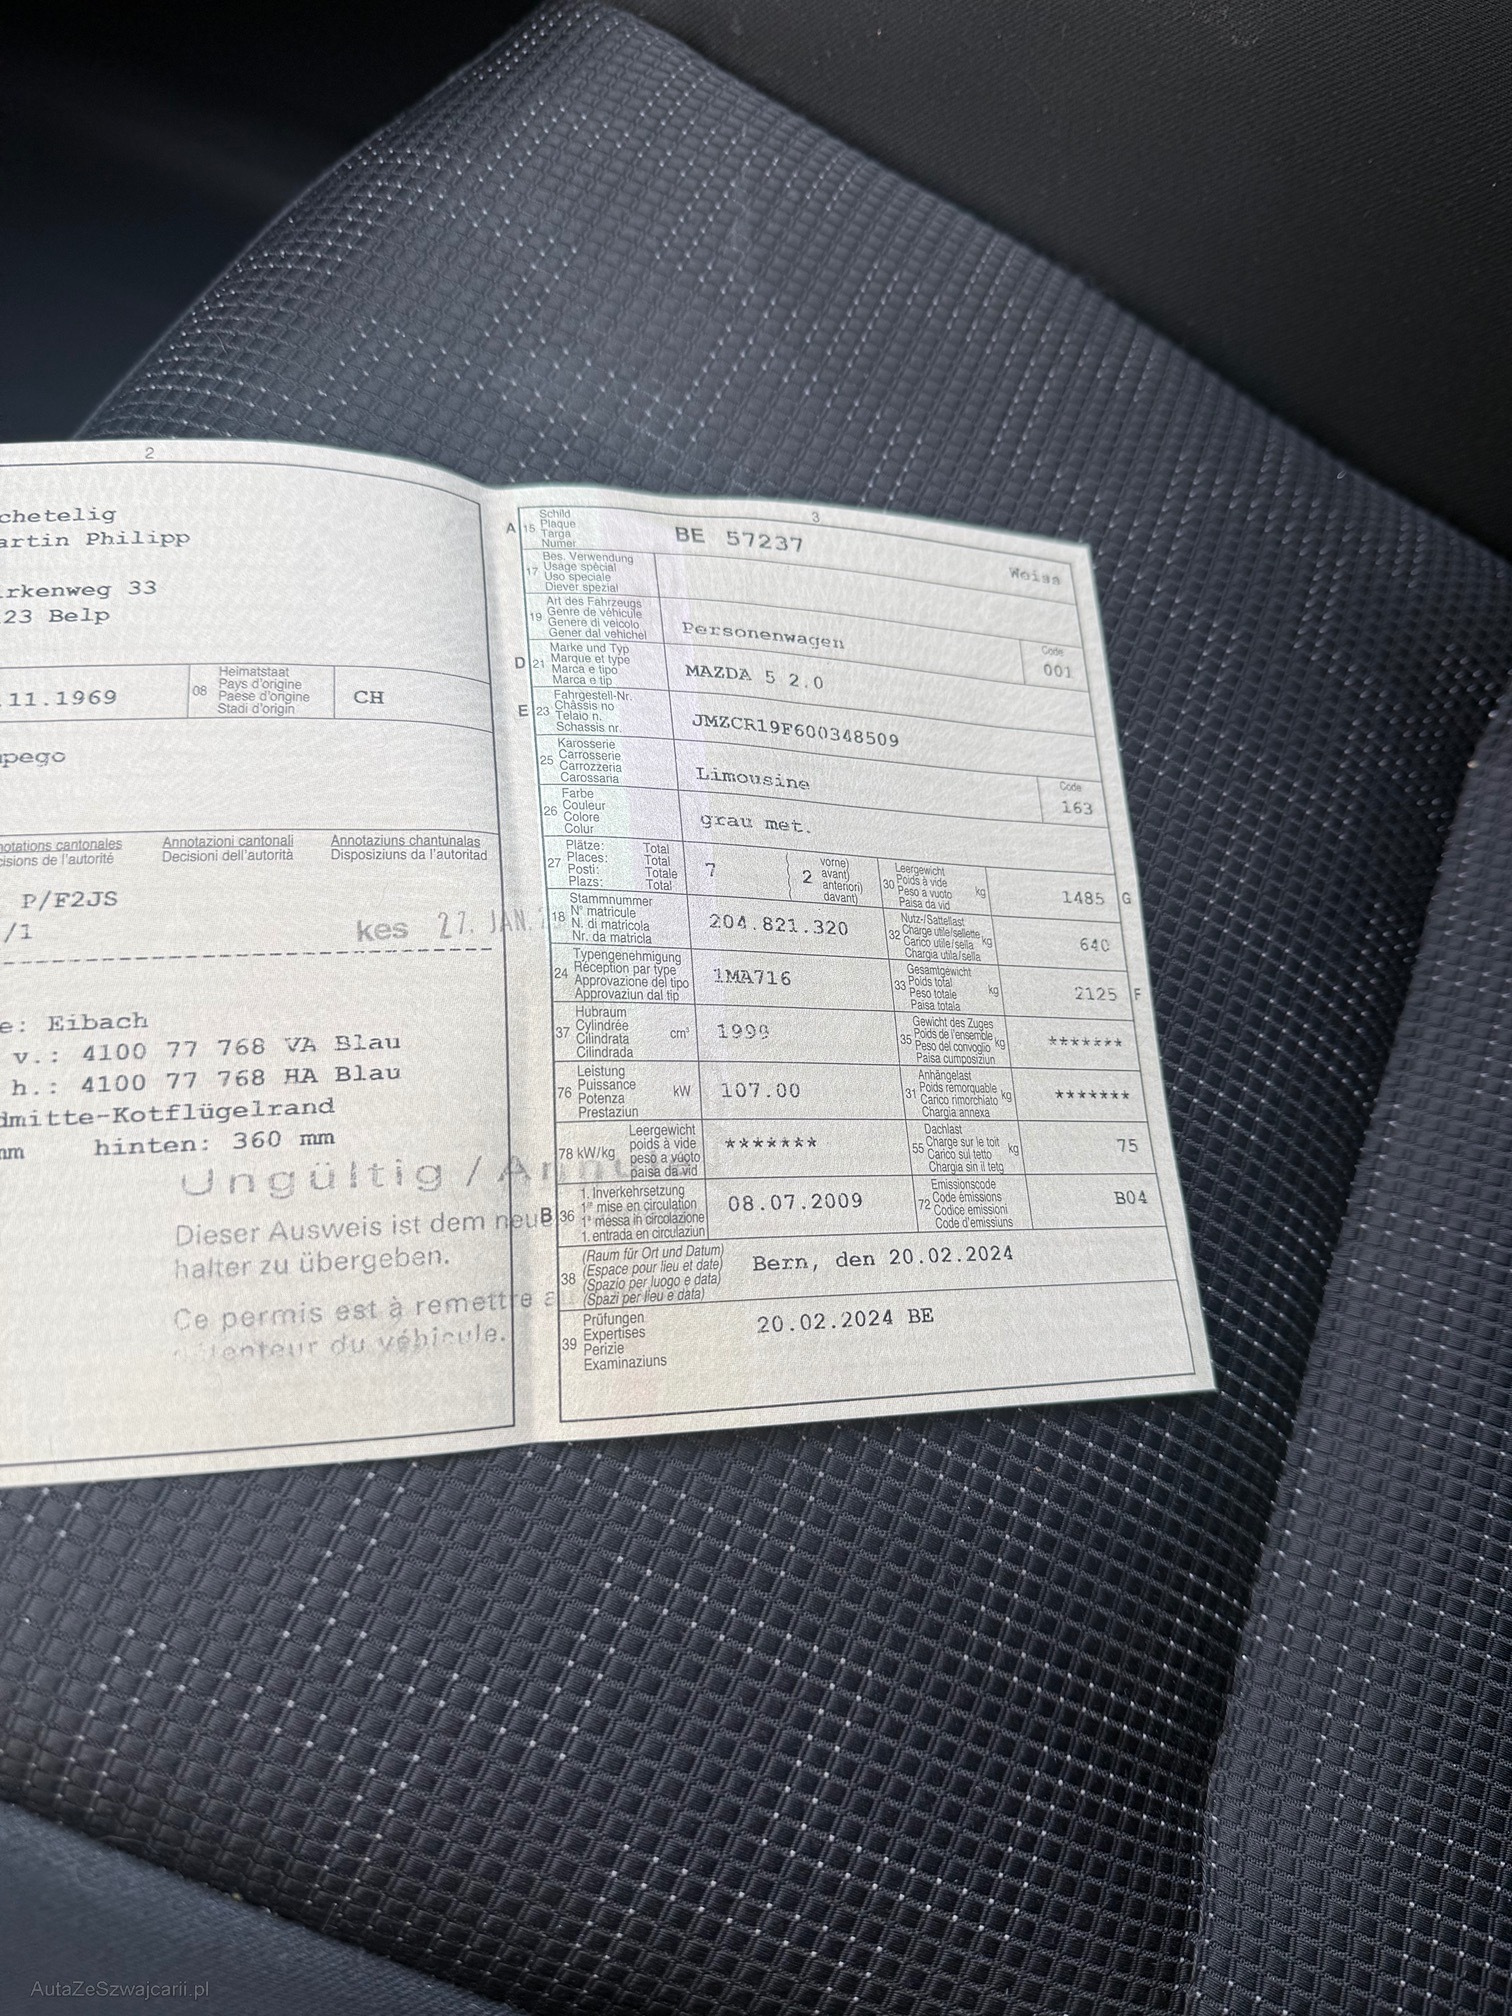 2
chetelig
artin Philipp
rkenweg 33
23 Belp
.11.1969
08
Heimatstaat
Pays d'origine
Paese d'origine
Stadi d'origin
CH
pego
notations cantonales
cisions de l'autorité
Annotazioni cantonali
Decisioni dell'autorità
Annotaziuns chantunalas
Disposiziuns da l'autoritad
P/F2JS
/1
kes 27. JAN.
e: Eibach
v.: 4100 77 768 VA Blau
h.: 4100 77 768 HA Blau
dmitte-Kotflügelrand
mm hinten: 360 mm
Ungültig / Ann
Dieser Ausweis ist dem neu
halter zu übergeben.
Ce permis est à remettre a
du véhicule.
3
A 15
Schild
Plaque
Targa
Numer
BE 57237
Weiss
17
Bes. Verwendung
Usage spécial
Uso speciale
Diever spezial
19
Art des Fahrzeugs
Genre de véhicule
Genere di veicolo
Gener dal vehichel
Personenwagen
Code
001
D 21
Marke und Typ
Marque et type
Marca e tipo
Marca e tip
MAZDA 5 2.0
E 23
Fahrgestell-Nr.
Châssis no
Telaio n.
Schassis nr.
JMZCR19F600348509
25
Karosserie
Carrosserie
Carrozzeria
Carossaria
Limousine
Code
163
26
Farbe
Couleur
Colore
Colur
grau met.
27
Plätze: Total
Places: Total
Posti: Totale
Plazs: Total
7
2
vorne)
avant)
anteriori)
davant)
30
Leergewicht
Poids à vide
Peso a vuoto
Paisa da vid
kg
1485 G
18
Stammnummer
N° matricule
N. di matricola
Nr. da matricla
204.821.320
32
Nutz-/Sattellast
Charge utile/sellette
Carico utile/sella
Chargia utila/sella
kg
640
24
Typengenehmigung
Réception par type
Approvazione del tipo
Approvaziun dal tip
1MA716
33
Gesamtgewicht
Poids total
Peso totale
Paisa totala
kg
2125 F
37
Hubraum
Cylindrée
Cilindrata
Cilindrada
cm³
1999
35
Gewicht des Zuges
Poids de l'ensemble
Peso del convoglio
Paisa cumposiziun
kg
*******
76
Leistung
Puissance
Potenza
Prestaziun
kW
107.00
31
Anhängelast
Poids remorquable
Carico rimorchiato
Chargia annexa
kg
*******
78 kW/kg
Leergewicht
poids à vide
peso a vuoto
paisa da vid
*******
55
Dachlast
Charge sur le toit
Carico sul tetto
Chargia sin il tetg
kg
75
B 36
1. Inverkehrsetzung
1re mise en circulation
1a messa in circolazione
1. entrada en circulaziun
08.07.2009
72
Emissionscode
Code émissions
Codice emissioni
Code d'emissiuns
B04
38
(Raum für Ort und Datum)
(Espace pour lieu et date)
(Spazio per luogo e data)
(Spazi per lieu e data)
Bern, den 20.02.2024
39
Prüfungen
Expertises
Perizie
Examinaziuns
20.02.2024 BE
AutaZeSzwajcarii.pl